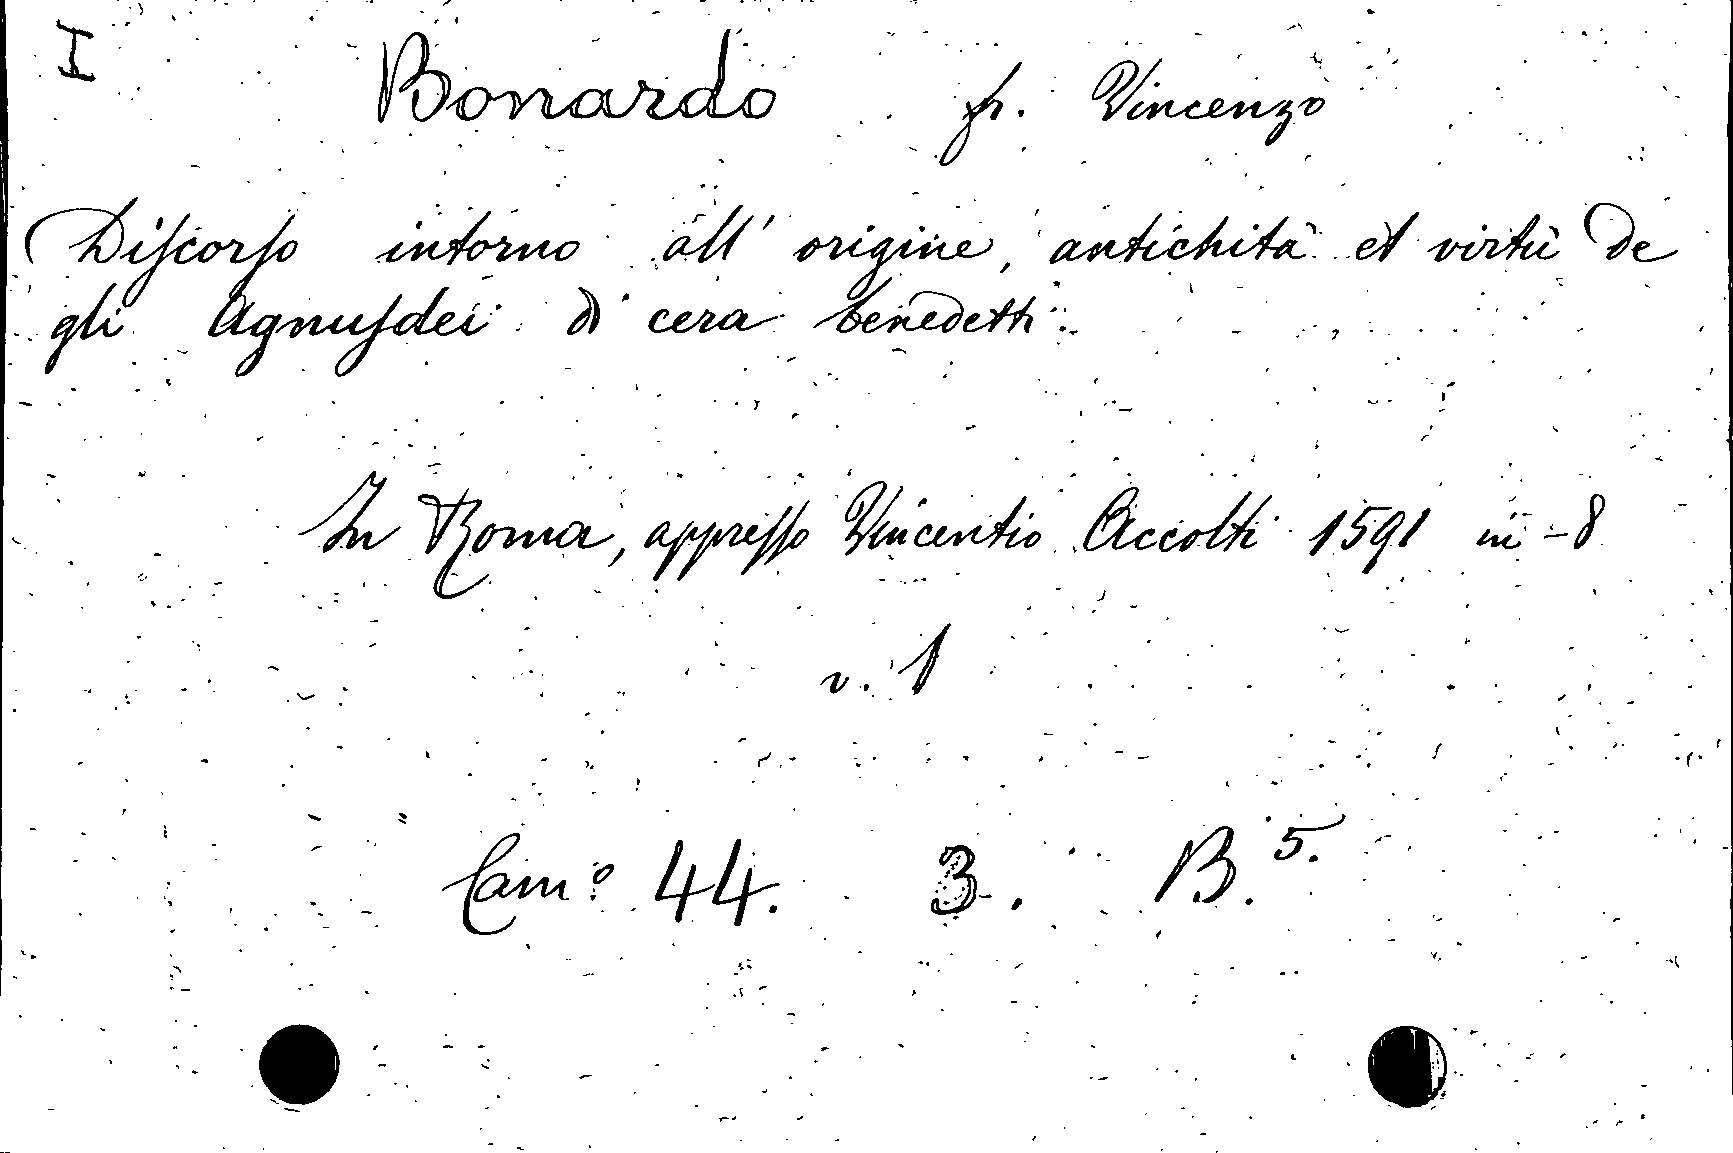 I
Bonardo fr. Vincenzo
Diſcorſo intorno all' origine, antichità et virtù de
gli Agnuſdei di cera benedetti.
In Roma, appreſſo Vincentio Accolti 1591 in-8
v. 1
Cam.º 44. 3. B.5.